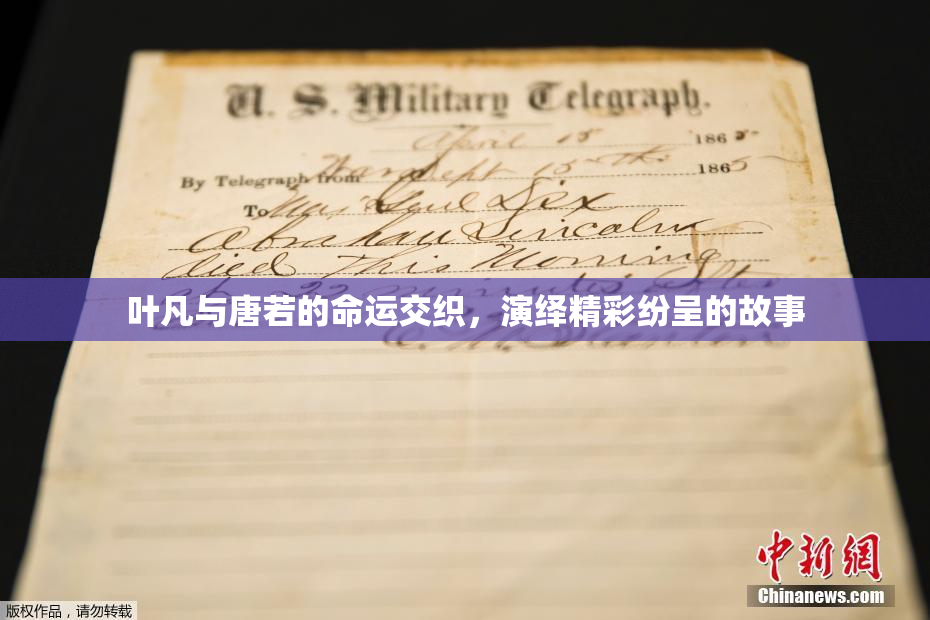 U. S. Military Telegraph.
April 15 1865
By Telegraph from War Dept 15th 1865
To Maj Genl Dix
Abraham Lincoln
died This Morning
at 22 minutes after
叶凡与唐若的命运交织，演绎精彩纷呈的故事
E. M. Stanton
中新网
Chinanews.com
版权作品，请勿转载